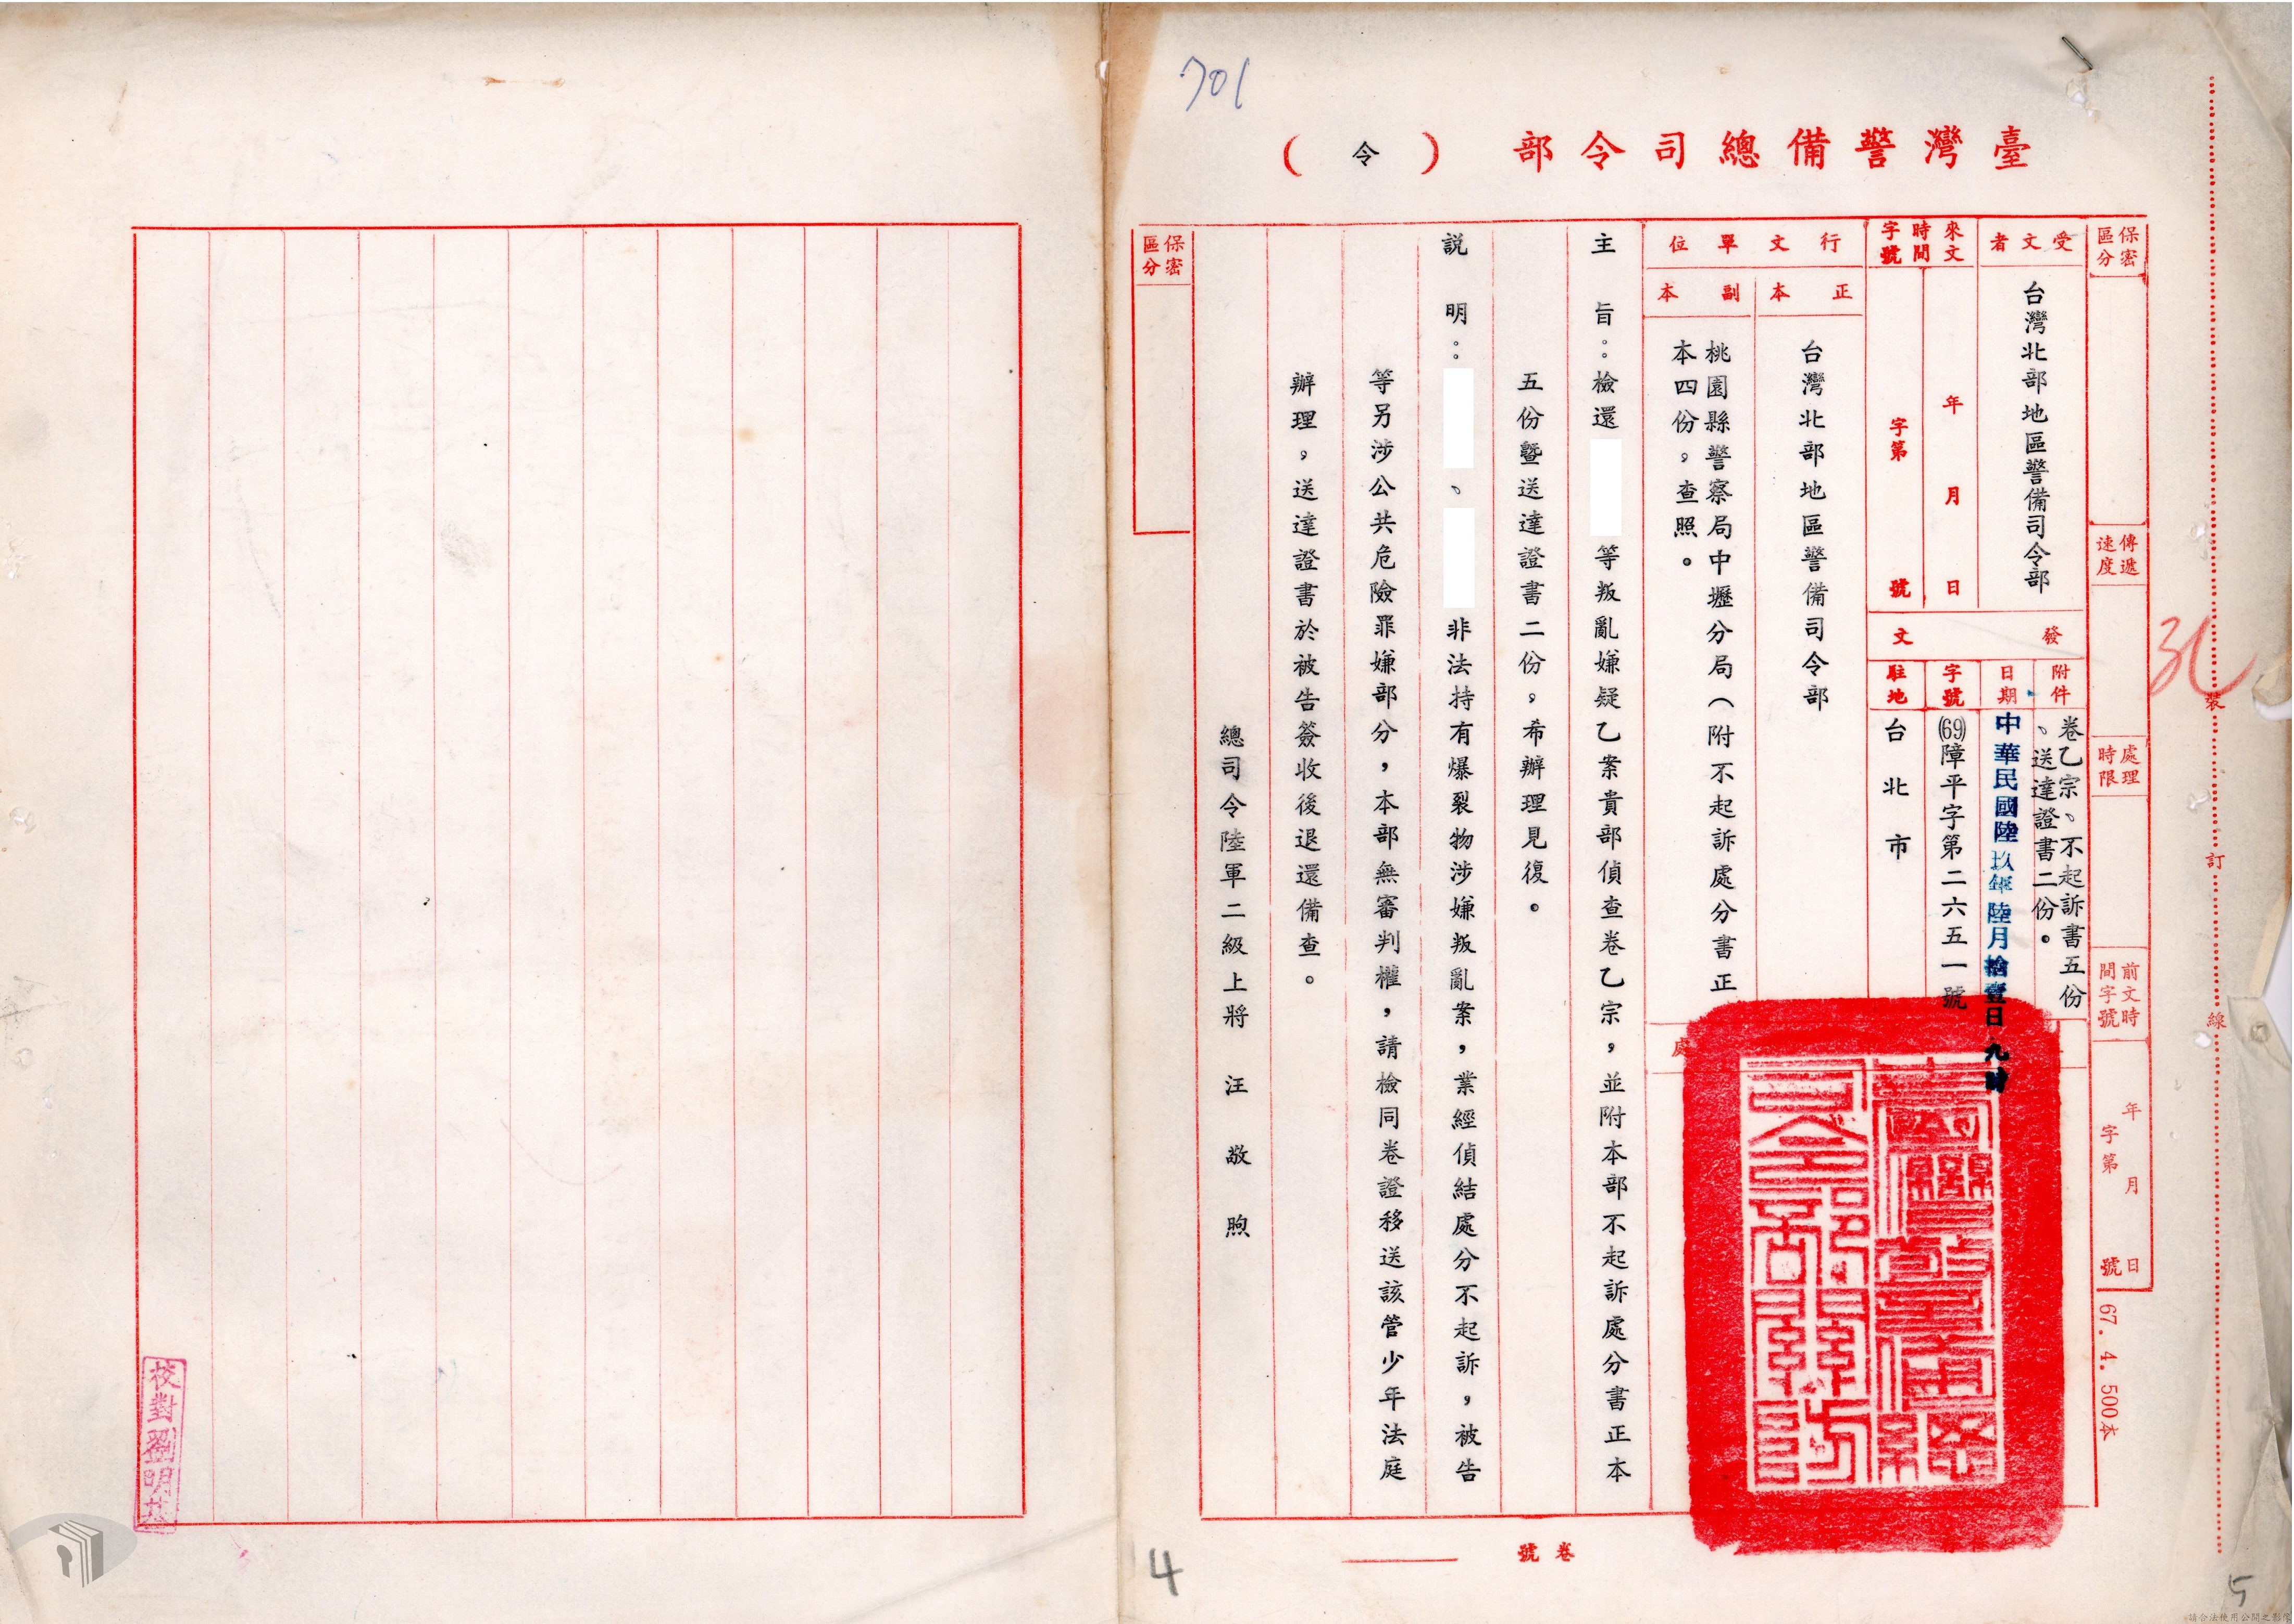 701
臺灣警備總司令部（令）
裝訂線
31
保密區分
傳遞速度
處理時限
前文時間字號
年月日
字第號
67.4.500本
受文者
台灣北部地區警備司令部
來文時間字號
年月日
字第號
發文
附件
卷乙宗、不起訴書五份
、送達證書二份。
日期
中華民國陸玖年陸月拾壹日九時
字號
(69)障平字第二六五一號
駐地
台北市
行文單位
正本
台灣北部地區警備司令部
副本
桃園縣警察局中壢分局（附不起訴處分書正
本四份，查照。
處
主旨：檢還等叛亂嫌疑乙案貴部偵查卷乙宗，並附本部不起訴處分書正本
五份暨送達證書二份，希辦理見復。
說明：、非法持有爆裂物涉嫌叛亂案，業經偵結處分不起訴，被告
等另涉公共危險罪嫌部分，本部無審判權，請檢同卷證移送該管少年法庭
辦理，送達證書於被告簽收後退還備查。
總司令陸軍二級上將汪敬煦
保密區分
卷號
4
5
校對劉明